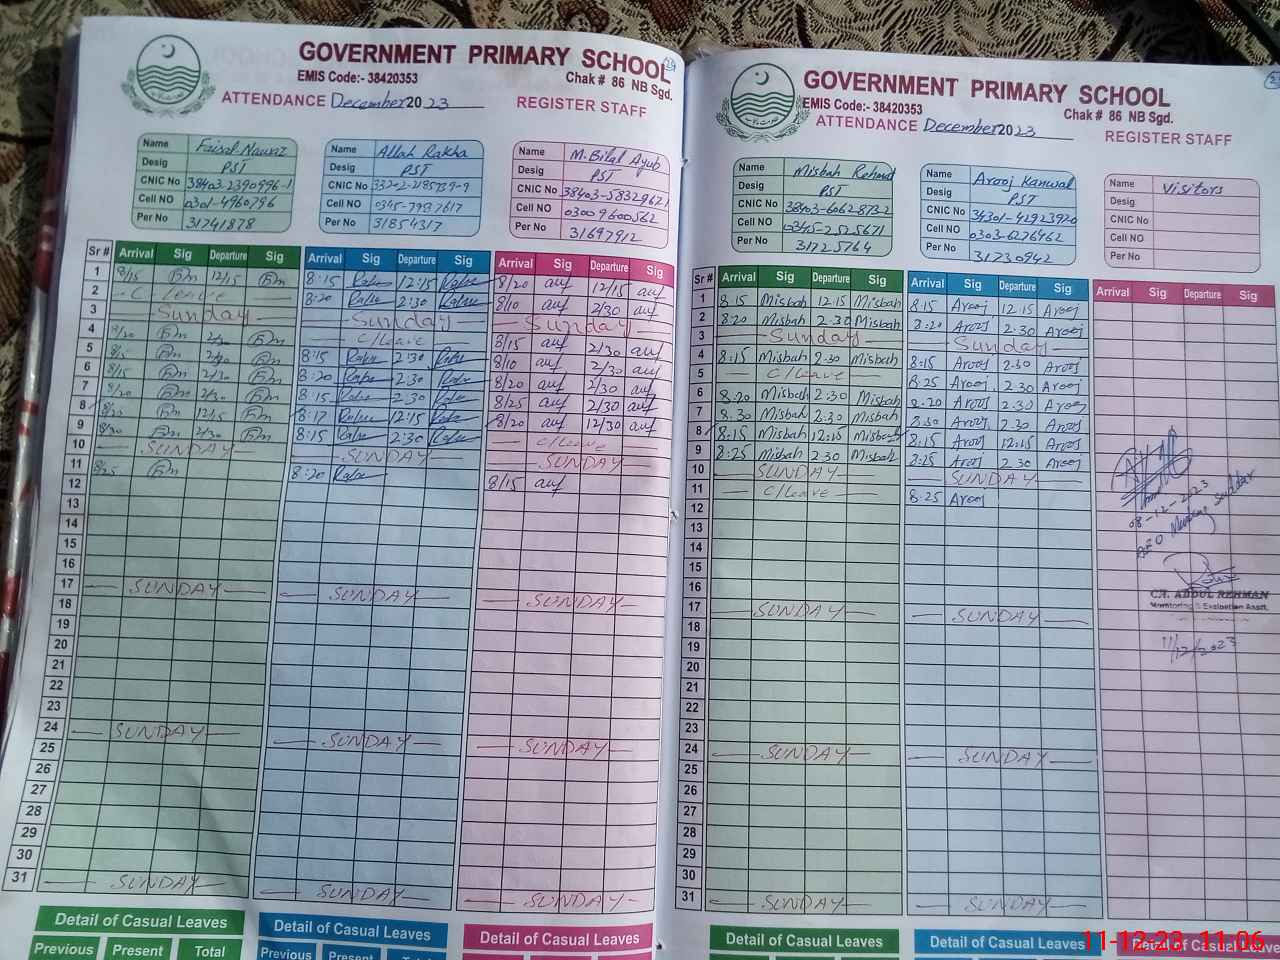 GOVERNMENT PRIMARY SCHOOL
EMIS Code:- 38420353
Chak # 86 NB Sgd.
ATTENDANCE December 2023
REGISTER STAFF
Name Faisal Nawaz
Desig PST
CNIC No 38403-2390996-1
Cell NO 0301-4960796
Per No 31741878
Name Allah Rakha
Desig PST
CNIC No
Cell NO 0345-7937617
Per No 31854317
Name M. Bilal Ayub
Desig PST
CNIC No 38403-5832962-1
Cell NO 03009600562
Per No 31697912
Sr # Arrival Sig Departure Sig Arrival Sig Departure Sig Arrival Sig Departure Sig
1 8/15 12/15 8:15 12:15 8/20 12/15
2 C/Leave 8:20 2:30 8/10 2/30
3 Sunday Sunday Sunday
4 8/20 C/Leave 8/15 2/30
5 8/15 2/30 8:15 2:30 8/10 2/30
6 8/15 2/30 8:20 2:30 8/20 2/30
7 8/20 2/30 8:15 2:30 8/25 2/30
8 8/20 12/15 8:17 12:15 8/20 12/30
9 8/30 2/30 8:15 2:30 C/Leave
10 SUNDAY SUNDAY SUNDAY
11 8/25 8:20 8/15
12
13
14
15
16
17 SUNDAY SUNDAY SUNDAY
18
19
20
21
22
23
24 SUNDAY SUNDAY SUNDAY
25
26
27
28
29
30
31 SUNDAY SUNDAY SUNDAY
Detail of Casual Leaves Detail of Casual Leaves Detail of Casual Leaves
Previous Present Total Previous Present Total
GOVERNMENT PRIMARY SCHOOL
EMIS Code:- 38420353
Chak # 86 NB Sgd.
ATTENDANCE December 2023
REGISTER STAFF
Name Misbah Rehmat
Desig PST
CNIC No 38403-6062873-2
Cell NO 03445-2525671
Per No 31725764
Name Arooj Kanwal
Desig PST
CNIC No 34301-41923920
Cell NO 0303-6276462
Per No 31230942
Name Visitors
Desig
CNIC No
Cell NO
Per No
Sr # Arrival Sig Departure Sig Arrival Sig Departure Sig Arrival Sig Departure Sig
1 8:15 Misbah 12:15 Misbah 8:15 Arooj 12:15 Arooj
2 8:20 Misbah 2:30 Misbah 8:20 Arooj 2:30 Arooj
3 Sunday Sunday
4 8:15 Misbah 2:30 Misbah 8:15 Arooj 2:30 Arooj
5 C/Leave 8:25 Arooj 2:30 Arooj
6 8:20 Misbah 2:30 Misbah 8:20 Arooj 2:30 Arooj
7 8:30 Misbah 2:30 Misbah 8:30 Arooj 2:30 Arooj
8 8:15 Misbah 12:15 Misbah 8:15 Arooj 12:15 Arooj
9 8:25 Misbah 2:30 Misbah 8:25 Arooj 2:30 Arooj
10 SUNDAY SUNDAY
11 C/Leave 8:25 Arooj
12
13
14
15
16
17 SUNDAY SUNDAY
18
19
20
21
22
23
24 SUNDAY SUNDAY
25
26
27
28
29
30
31 SUNDAY SUNDAY
08-12-2023
AEO
CH. ABDUL REHMAN
Monitoring & Evaluation Asstt.
11/12/2023
Detail of Casual Leaves Detail of Casual Leaves Detail of Casual Leaves
11-12-23 11:06